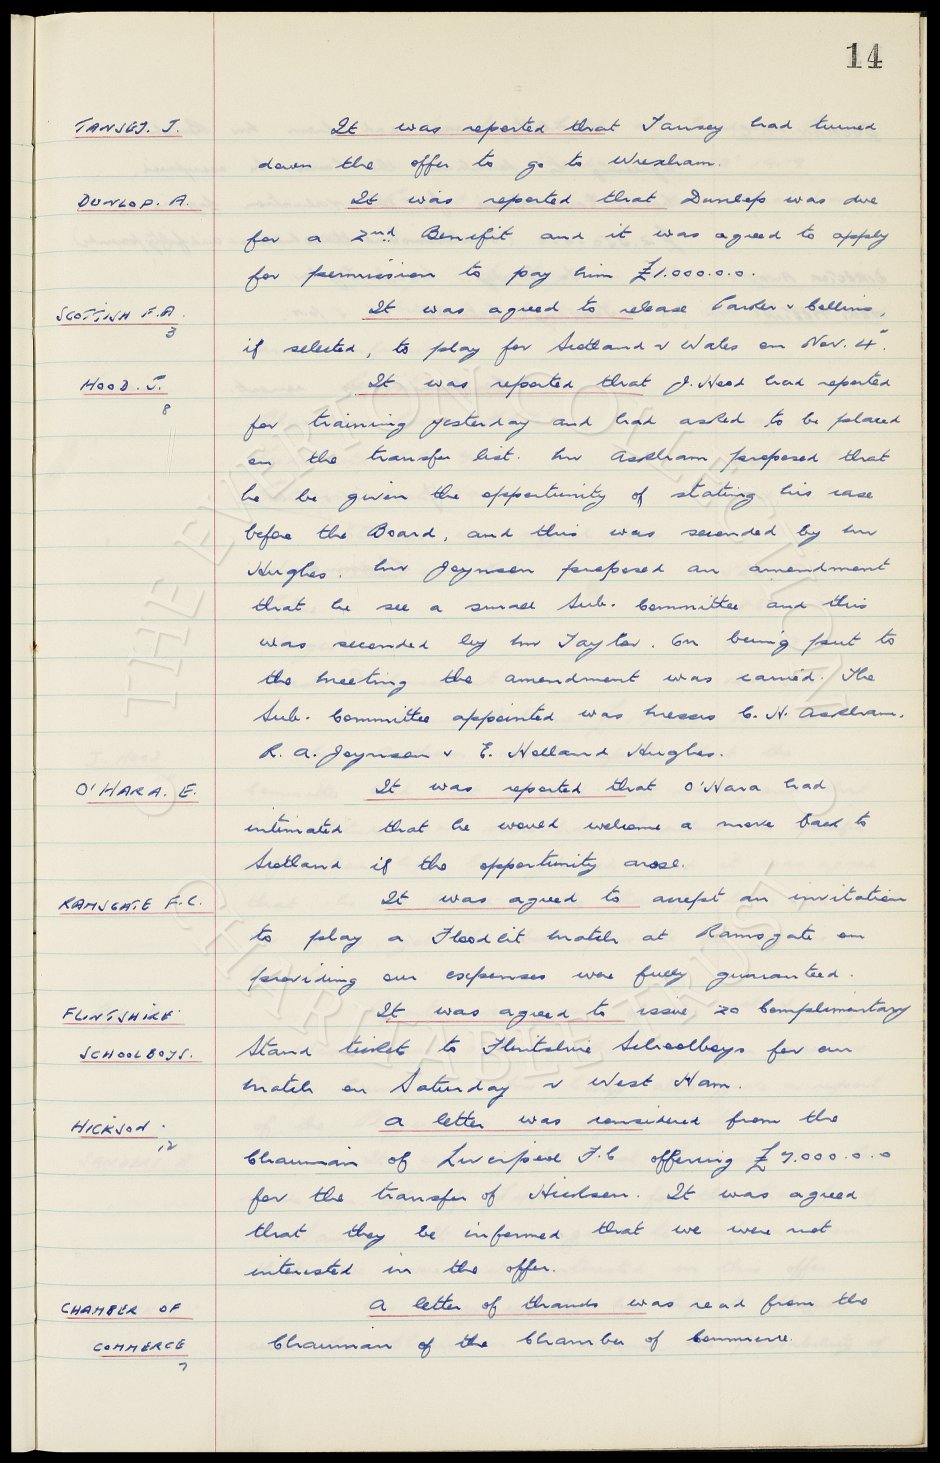 14
TANSEY. J. It was reported that Tansey had turned
down the offer to go to Wrexham.
DUNLOP. A. It was reported that Dunlop was due
for a 2nd Benefit and it was agreed to apply
for permission to pay him £1.000.0.0.
SCOTTISH F.A. It was agreed to release Parker & Collins,
3
if selected, to play for Scotland v Wales on Nov. 4".
HOOD. J. It was reported that J. Hood had reported
8
for training yesterday and had asked to be placed
on the transfer list. Mr Askham proposed that
he be given the opportunity of stating his case
before the Board, and this was seconded by Mr
Hughes. Mr Joynson proposed an amendment
that he see a small Sub. Committee and this
was seconded by Mr Taylor. On being put to
the meeting the amendment was carried. The
Sub. Committee appointed was Messrs C. H. Askham.
R. A. Joynson & E. Holland Hughes.
O'HARA. E. It was reported that O'Hara had
intimated that he would welcome a move back to
Scotland if the opportunity arose.
RAMSGATE F.C. It was agreed to accept an invitation
to play a Floodlit match at Ramsgate on
providing our expenses were fully guaranteed.
FLINTSHIRE It was agreed to issue 20 Complimentary
SCHOOLBOYS. Stand tickets to Flintshire Schoolboys for our
match on Saturday v West Ham.
HICKSON. A letter was considered from the
12
Chairman of Liverpool F.C offering £7.000.0.0
for the transfer of Hickson. It was agreed
that they be informed that we were not
interested in the offer.
CHAMBER OF A letter of thanks was read from the
COMMERCE Chairman of the Chamber of Commerce.
7
THE EVERTON COLLECTION
CHARITABLE TRUST